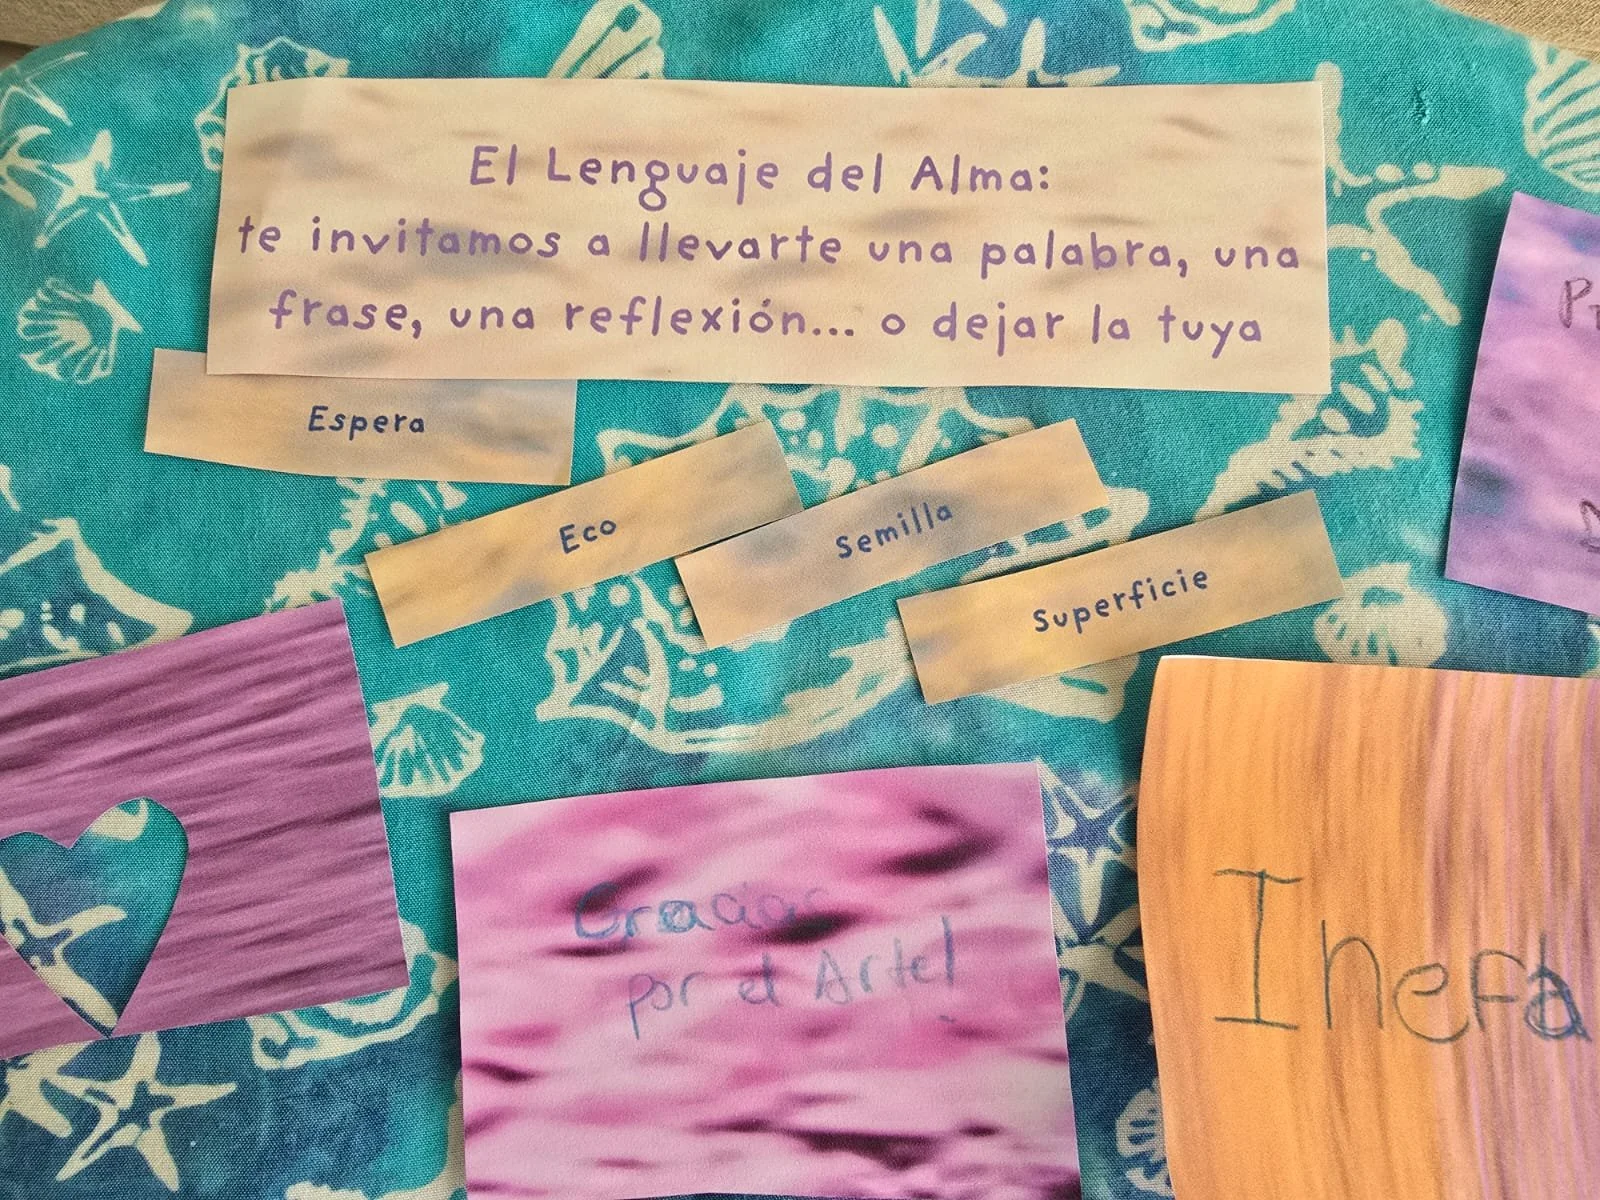 El Lenguaje del Alma:
te invitamos a llevarte una palabra, una
frase, una reflexión... o dejar la tuya
Espera
Eco
Semilla
Superficie
Gracias
por el Arte!